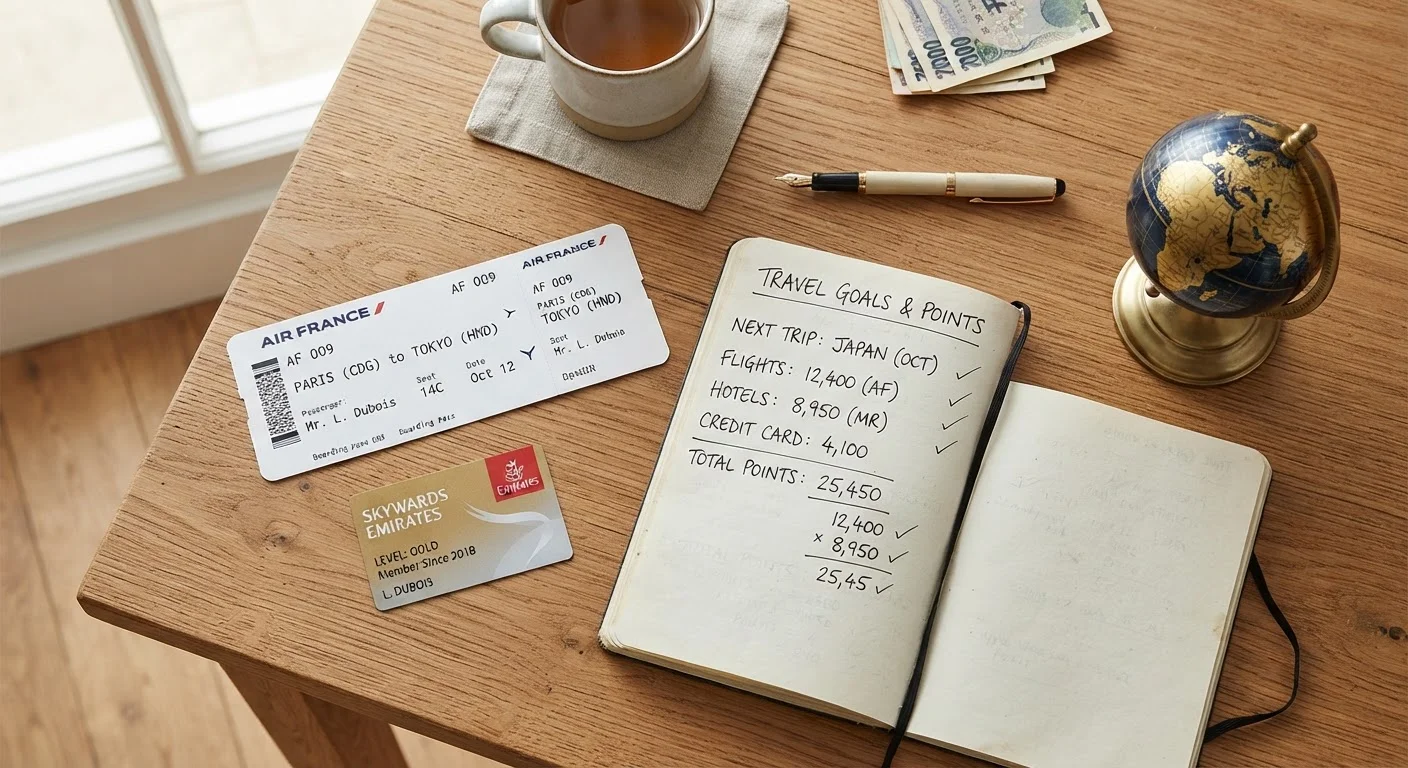 AIR FRANCE
AF 009
AF 009
PARIS (CDG) to TOKYO (HND)
Passenger:
Mr. L. Dubois
Seat
14C
Date
Oct 12
Boarding Pass
AIR FRANCE
AF 009
PARIS (CDG)
TOKYO (HND)
Seat
Mr. L. Dubois
SKYWARDS
EMIRATES
Emirates
LEVEL: GOLD
Member Since 2018
L. DUBOIS
TRAVEL GOALS & POINTS
NEXT TRIP: JAPAN (OCT) ✓
FLIGHTS: 12,400 (AF) ✓
HOTELS: 8,950 (MR) ✓
CREDIT CARD: 4,100
TOTAL POINTS: 25,450
12,400 ✓
× 8,950 ✓
25,45 ✓